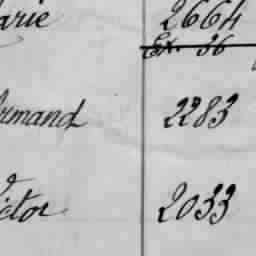 arie 2664
Ex. 36
rmand 2283
ictor 2033